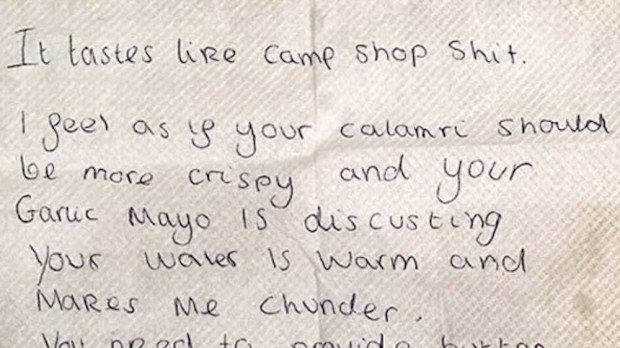 It tastes like camp shop shit.
I feel as if your calamri should
be more crispy and your
Garlic Mayo is discusting
Your water is warm and
Makes me chunder.
You need to provide butter